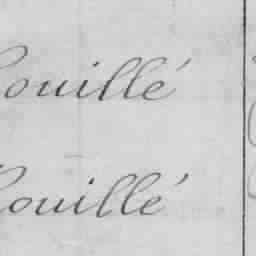 ouillé
ouillé